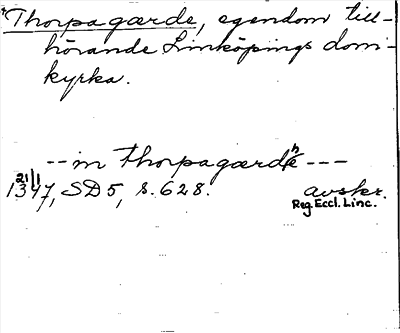 Thorpagærde, egendom till-
hörande Linköpings dom-
kyrka.
--in Thorpagærdhe---
21/1
1347, SD5, s. 628. avskr.
Reg. Eccl. Linc.